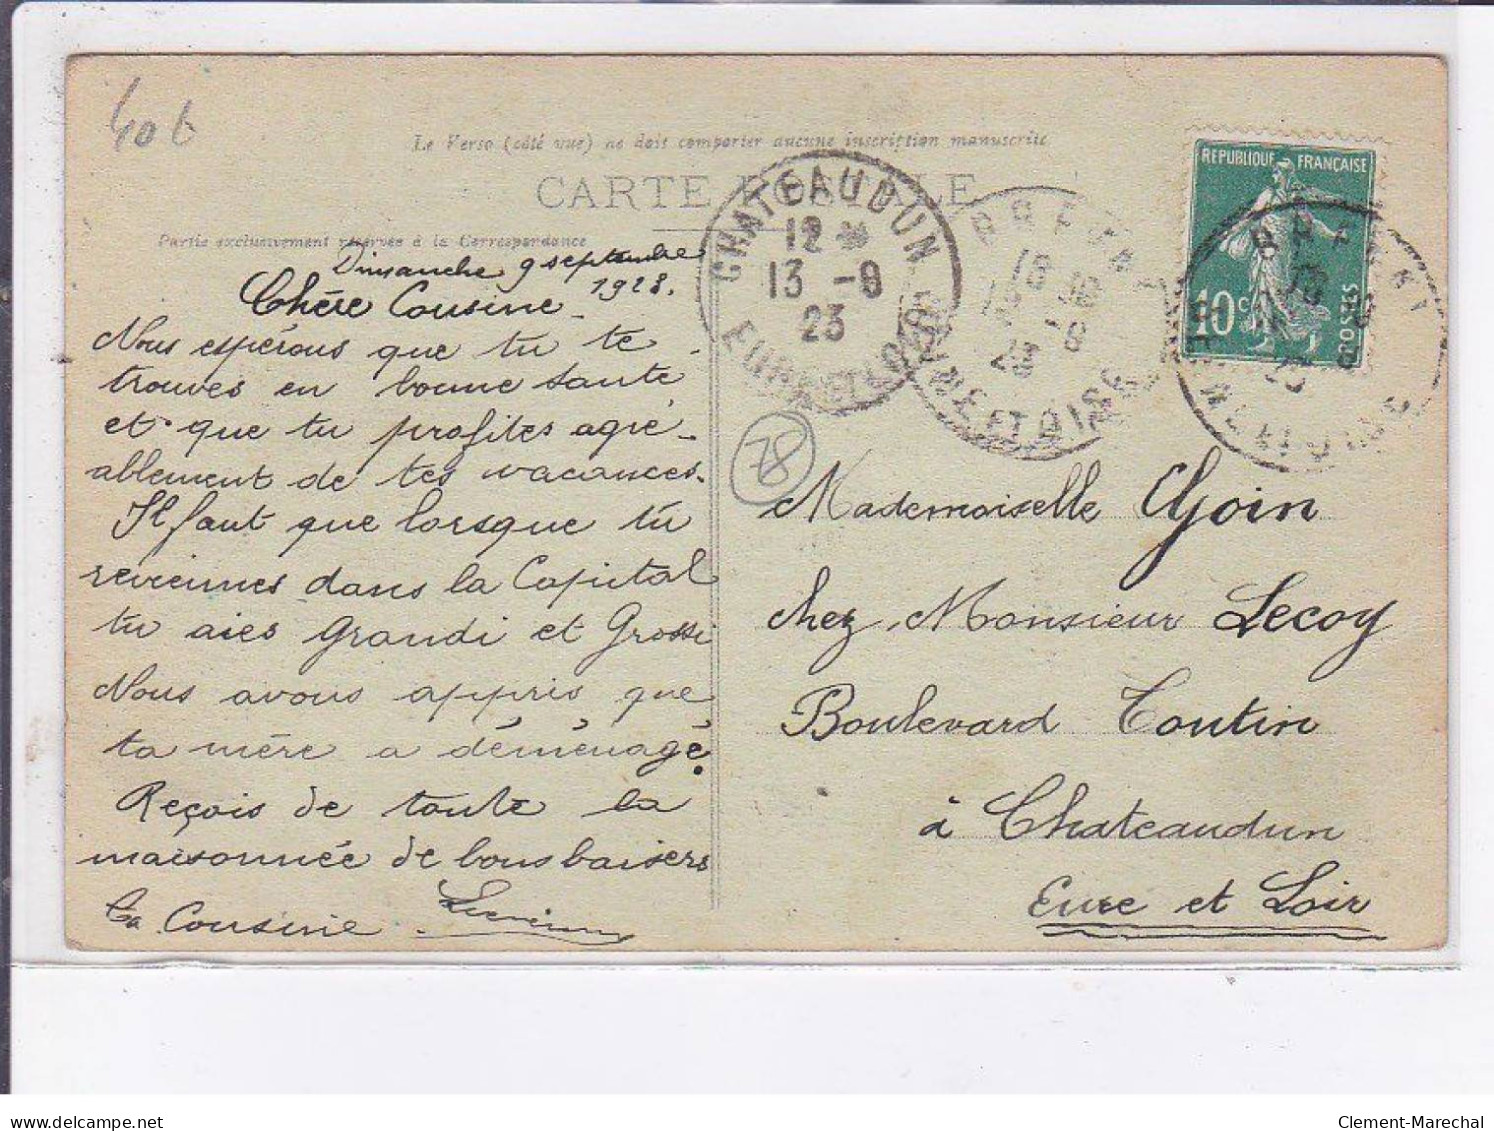 40 t
Le Verso (côté vue) ne doit comporter aucune inscription manuscrite
CARTE POSTALE
Partie exclusivement réservée à la Correspondance
Dimanche 9 septembre
1923.
Chère Cousine
Nous espérons que tu te
trouves en bonne santé
et que tu profites agré-
ablement de tes vacances.
Il faut que lorsque tu
reviennes dans la Capital
tu aies grandi et grossi
Nous avons appris que
ta mère a déménagé.
Reçois de toute la
maisonnée de bons baisers
ta cousine
CHATEAUDUN
12 *
13 -9
23
EURE ET LOIR
SEINE ET OISE
REPUBLIQUE FRANÇAISE
10c
POSTES
78
Mademoiselle Gjoin
chez Monsieur Lecoy
Boulevard Toutin
à Chateaudun
Eure et Loir
delcampe.net
Clement-Marechal